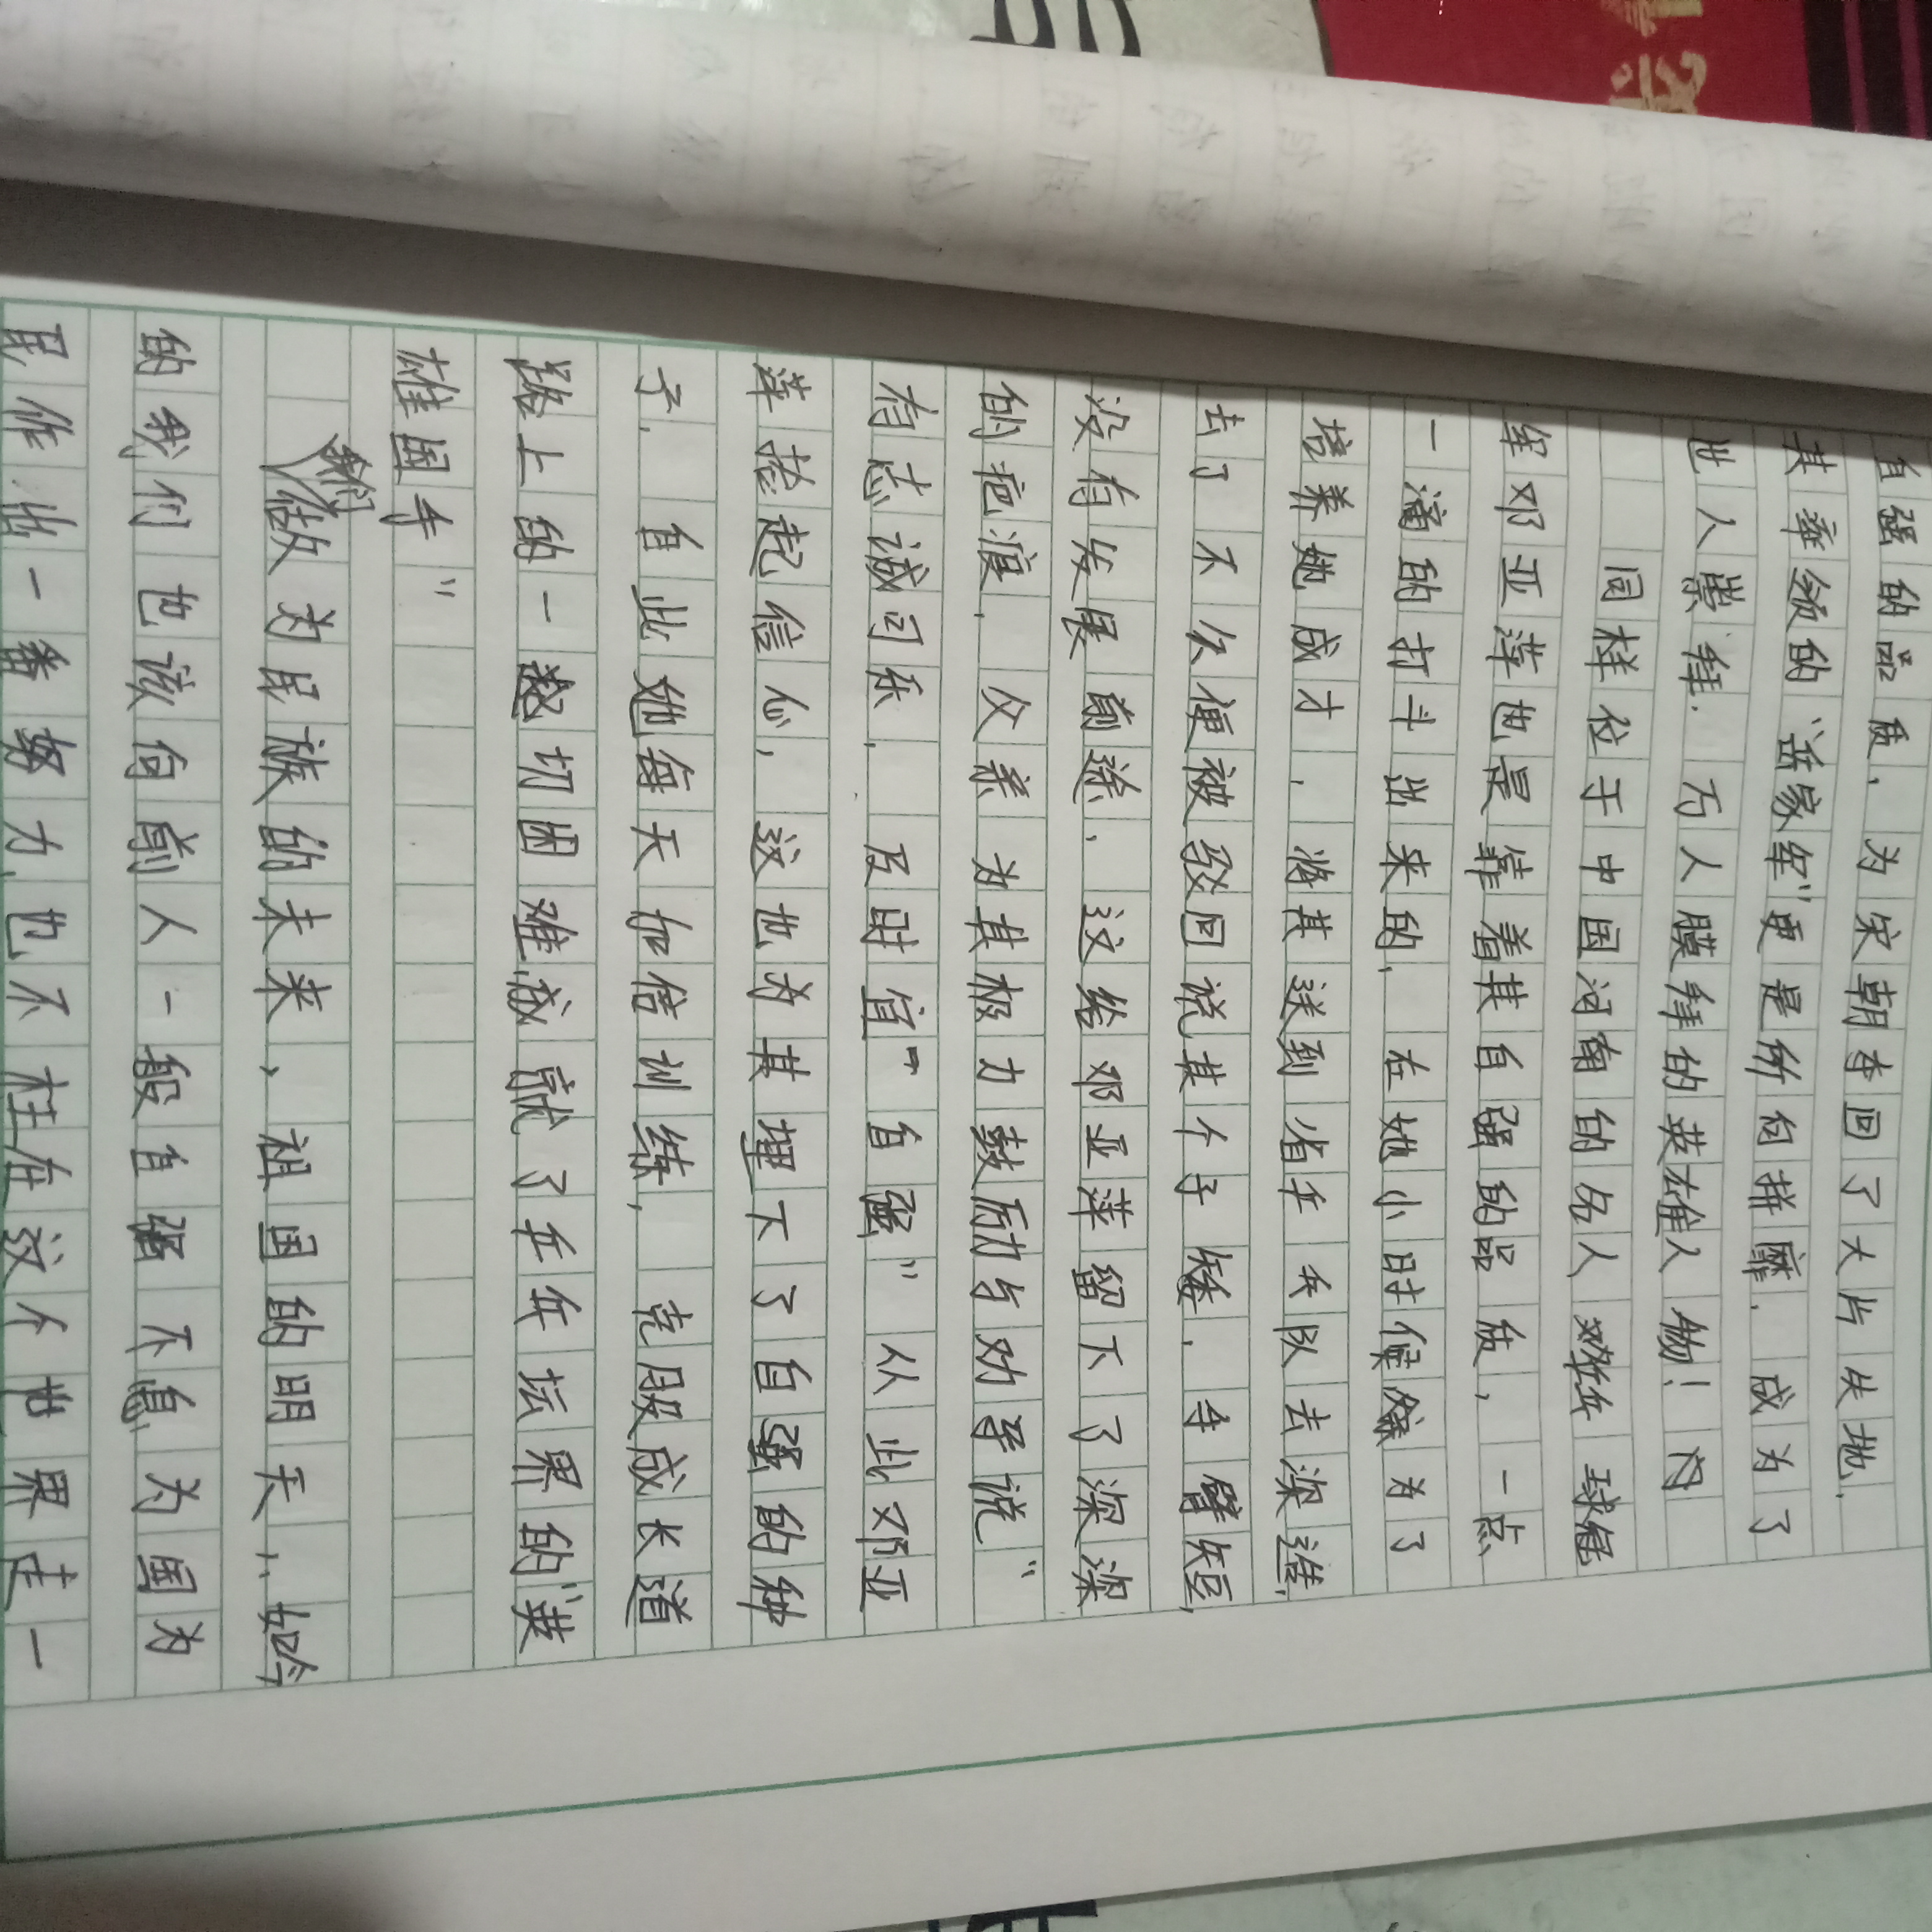 自强的品质，为宋朝夺回了大片失地.
其率领的“岳家军”更是所向披靡.成为了
世人崇拜.万人膜拜的英雄人物！
同样位于中国河南的名人乒乓球冠
军邓亚萍也是靠着其自强的品质，一点
一滴的打斗出来的，在她小时候家为了
培养她成才，将其送到省乒乓队去深造，
去了不久便被驳回说其个子矮，手臂短，
没有发展前途，这给邓亚萍留下了深深
的疤痕.父亲为其极力鼓励与劝导说“
有志诚可乐.及时宜自强”从此邓亚
萍拾起信心，这也为其埋下了自强的种
子.自此她每天加倍训练，克服成长道
路上的一切困难，成就了乒乓坛界的“英
雄国手”
我们
做为民族的未来，祖国的明天，如今
的我们也该向前人一般自强不息，为国为
民作出一番努力，也不枉在这个世界走一